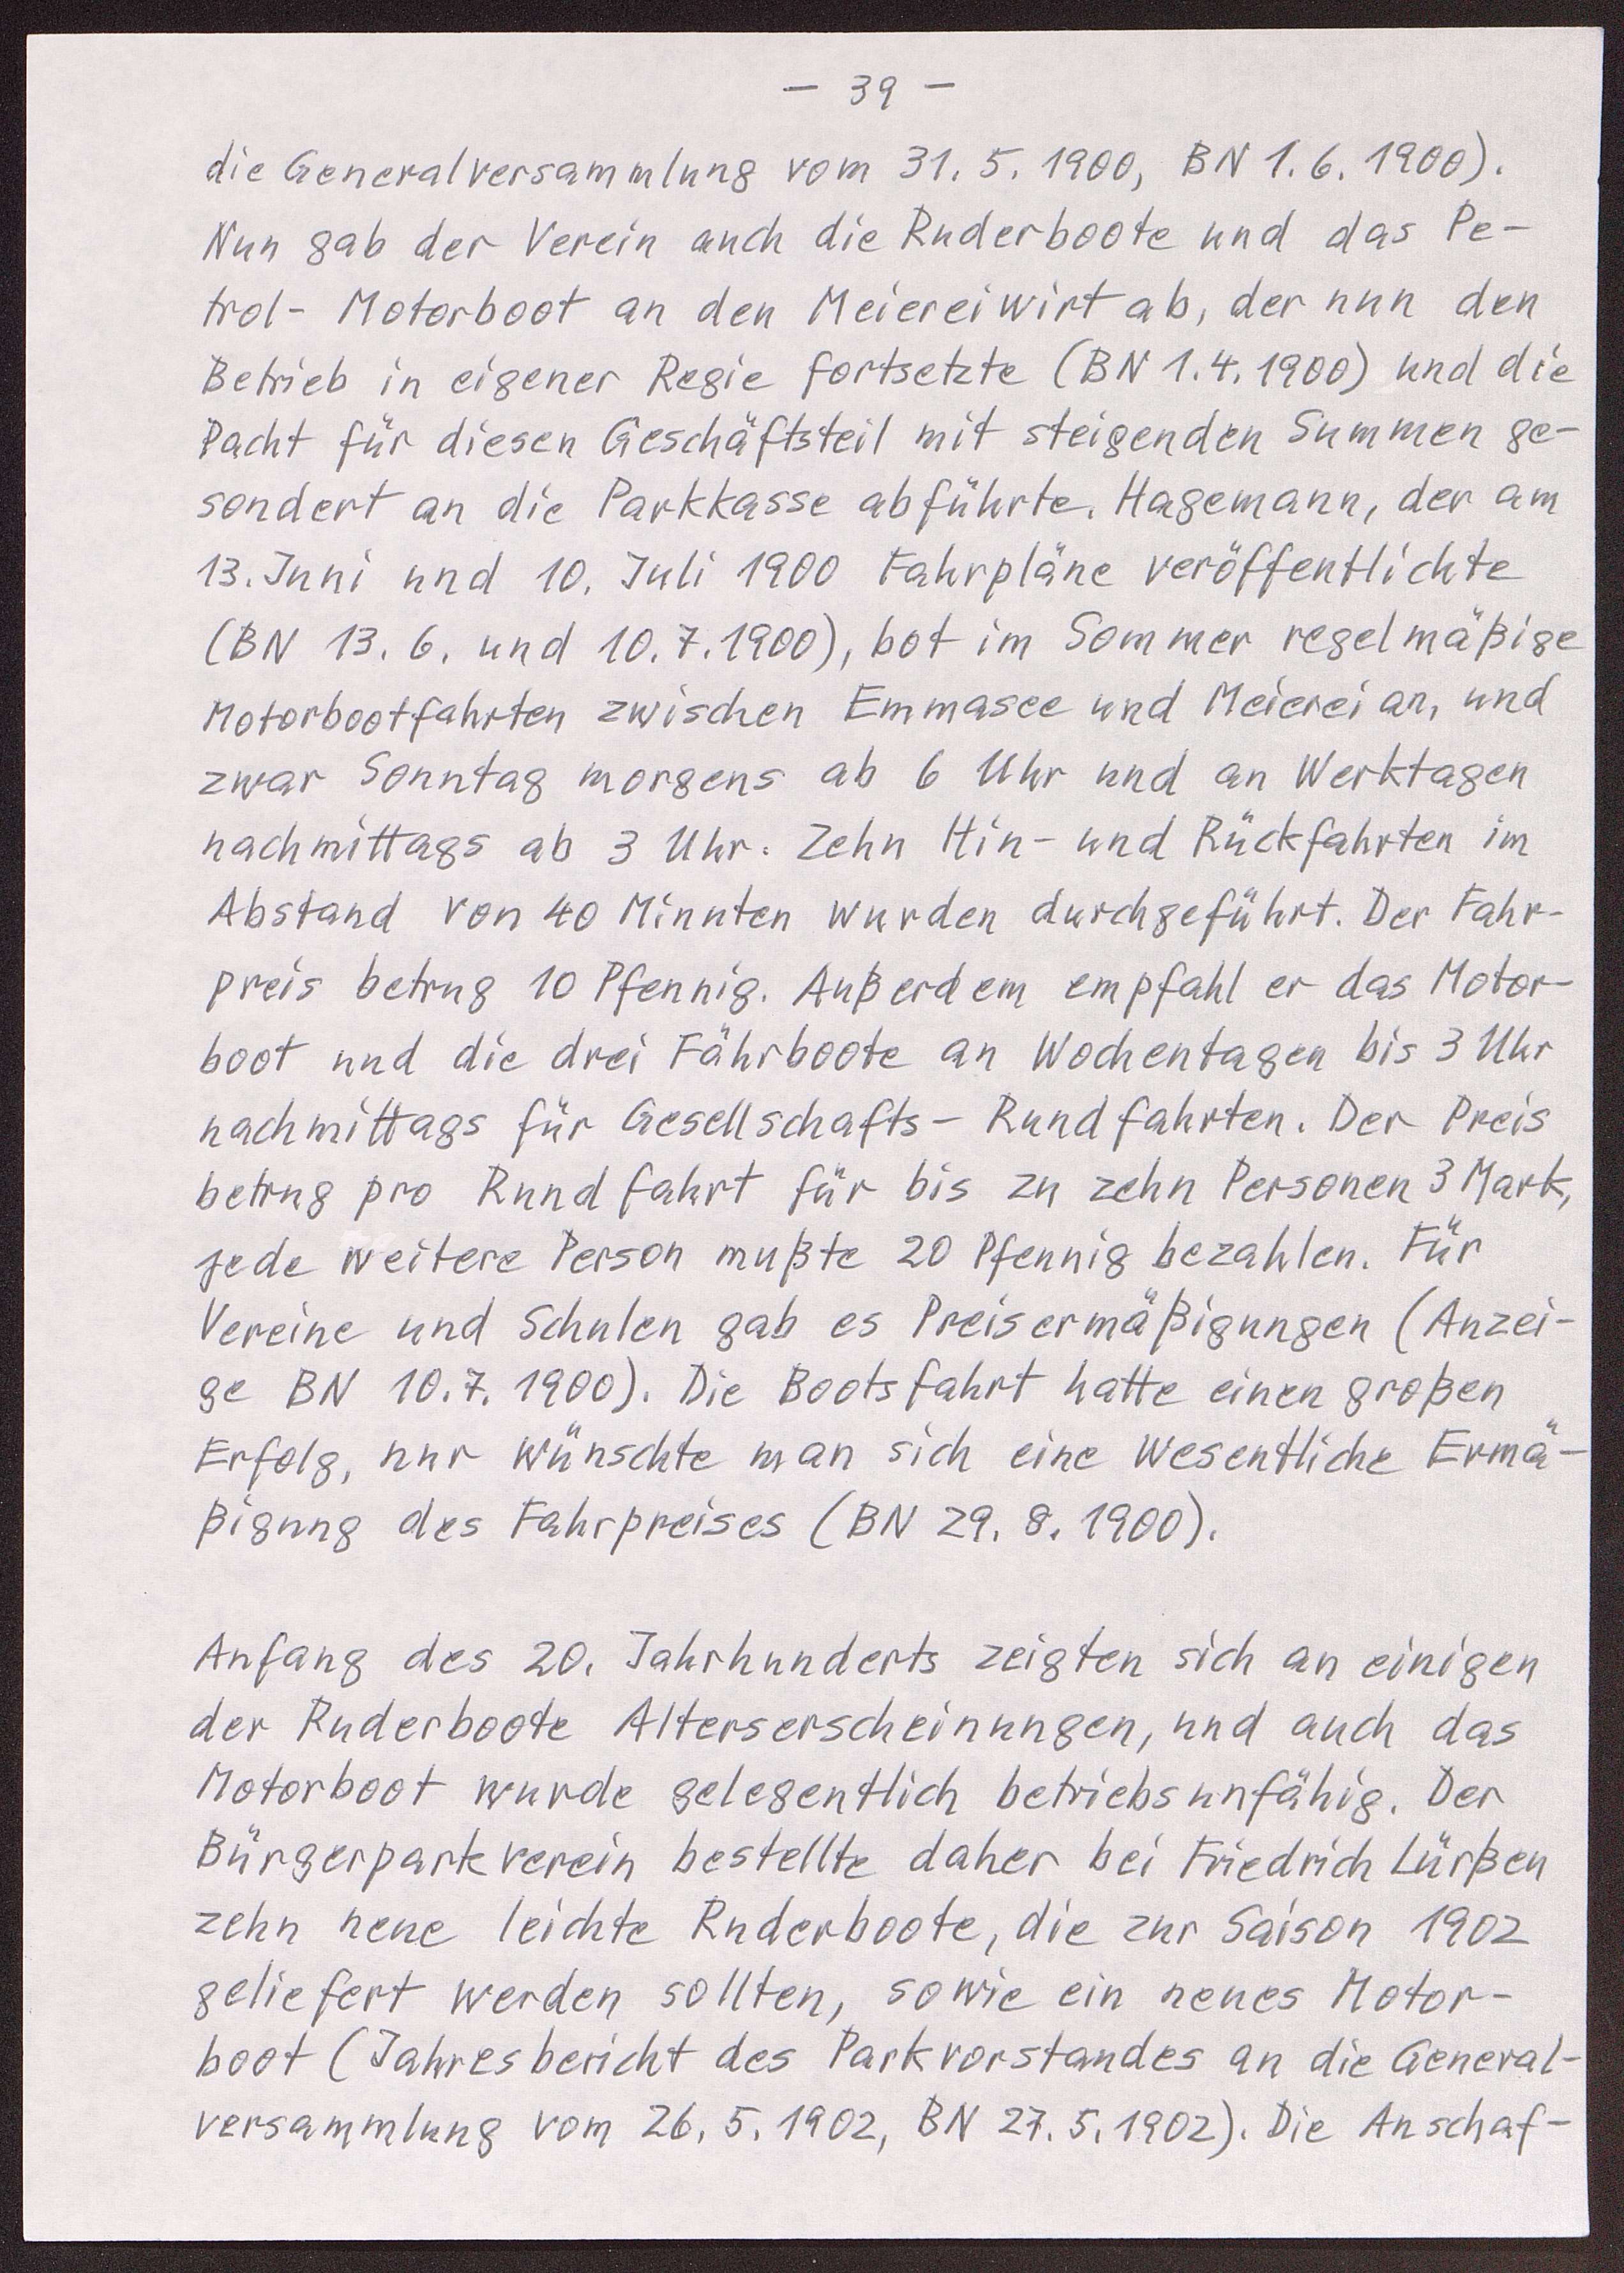 - 39 -
die Generalversammlung vom 31. 5. 1900, BN 1. 6. 1900).
Nun gab der Verein auch die Ruderboote und das Pe-
trol- Motorboot an den Meiereiwirt ab, der nun den
Betrieb in eigener Regie fortsetzte (BN 1. 4. 1900) und die
Pacht für diesen Geschäftsteil mit steigenden Summen ge-
sondert an die Parkkasse abführte. Hagemann, der am
13. Juni und 10. Juli 1900 Fahrpläne veröffentlichte
(BN 13. 6. und 10. 7. 1900), bot im Sommer regelmäßige
Motorbootfahrten zwischen Emmasee und Meierei an, und
zwar Sonntag morgens ab 6 Uhr und an Werktagen
nachmittags ab 3 Uhr. Zehn Hin- und Rückfahrten im
Abstand von 40 Minuten wurden durchgeführt. Der Fahr-
preis betrug 10 Pfennig. Außerdem empfahl er das Motor-
boot und die drei Fährboote an Wochentagen bis 3 Uhr
nachmittags für Gesellschafts- Rundfahrten. Der Preis
betrug pro Rundfahrt für bis zu zehn Personen 3 Mark,
jede weitere Person mußte 20 Pfennig bezahlen. Für
Vereine und Schulen gab es Preisermäßigungen (Anzei-
ge BN 10. 7. 1900). Die Bootsfahrt hatte einen großen
Erfolg, nur wünschte man sich eine wesentliche Ermä-
ßigung des Fahrpreises (BN 29. 8. 1900).
Anfang des 20. Jahrhunderts zeigten sich an einigen
der Ruderboote Alterserscheinungen, und auch das
Motorboot wurde gelegentlich betriebsunfähig. Der
Bürgerparkverein bestellte daher bei Friedrich Lürßen
zehn neue leichte Ruderboote, die zur Saison 1902
geliefert werden sollten, sowie ein neues Motor-
boot (Jahresbericht des Parkvorstandes an die General-
versammlung vom 26. 5. 1902, BN 27. 5. 1902). Die Anschaf-